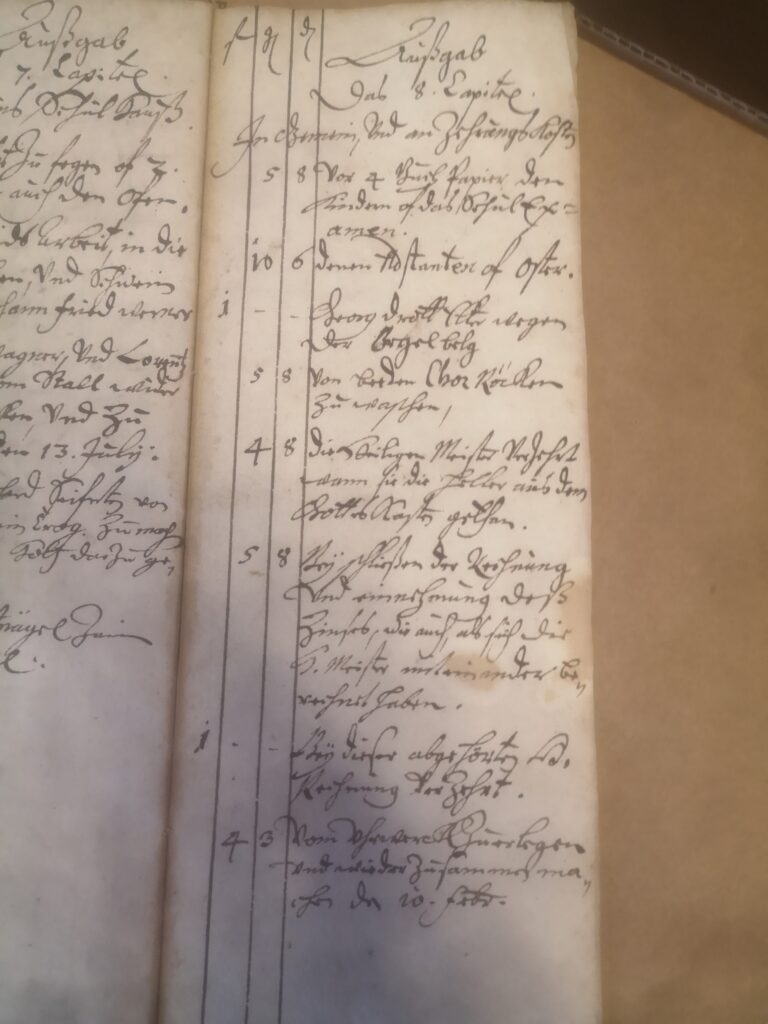 Außgab
7. Capitel.
Schul Hauß
Zu fegen of 2.
auch den Ofen.
Arbeit, in die
Und Schwein
fried werner
Und Lorentz
Stall wider
Und Zu
den 13. July.
von
Trog Zu mach
Holtz dazu ge,
f
Außgab
Das 8. Capitel.
In Gemein, Und an Zehrungs Kosten
5 8 Vor 4 Buch Papier den
Kindern of das Schul Ex=
amen.
10 6 denen Adstanten of Oster.
1 - - Georg wegen
der Orgel belg
5 8 Von beeden Chor Röcken
Zu waschen,
4 8 die Heiligen Meister Verzehrt
wann sie die Heller aus dem
Gottes Kasten gethan.
5 8 Bey schließen der Rechnung
Und einnehmung deß
Zinses, wie auch als sich die
H. Meister unteinander be,,
rechnet haben.
1 - - Bey dieser abgehörten H.
Rechnung Verzehrt.
4 3 Vom Uhrwerck Zuerlegen
und wieder Zusammen ma,,
chen den 10. Febr.